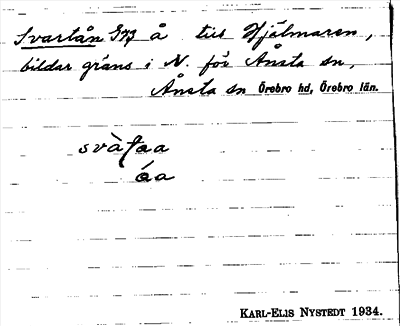 Svartån S73 å till Hjälmaren,
bildar gräns i N. för Ånsta sn,
Ånsta sn Örebro hd, Örebro län.
óa
KARL-ELIS NYSTEDT 1934.